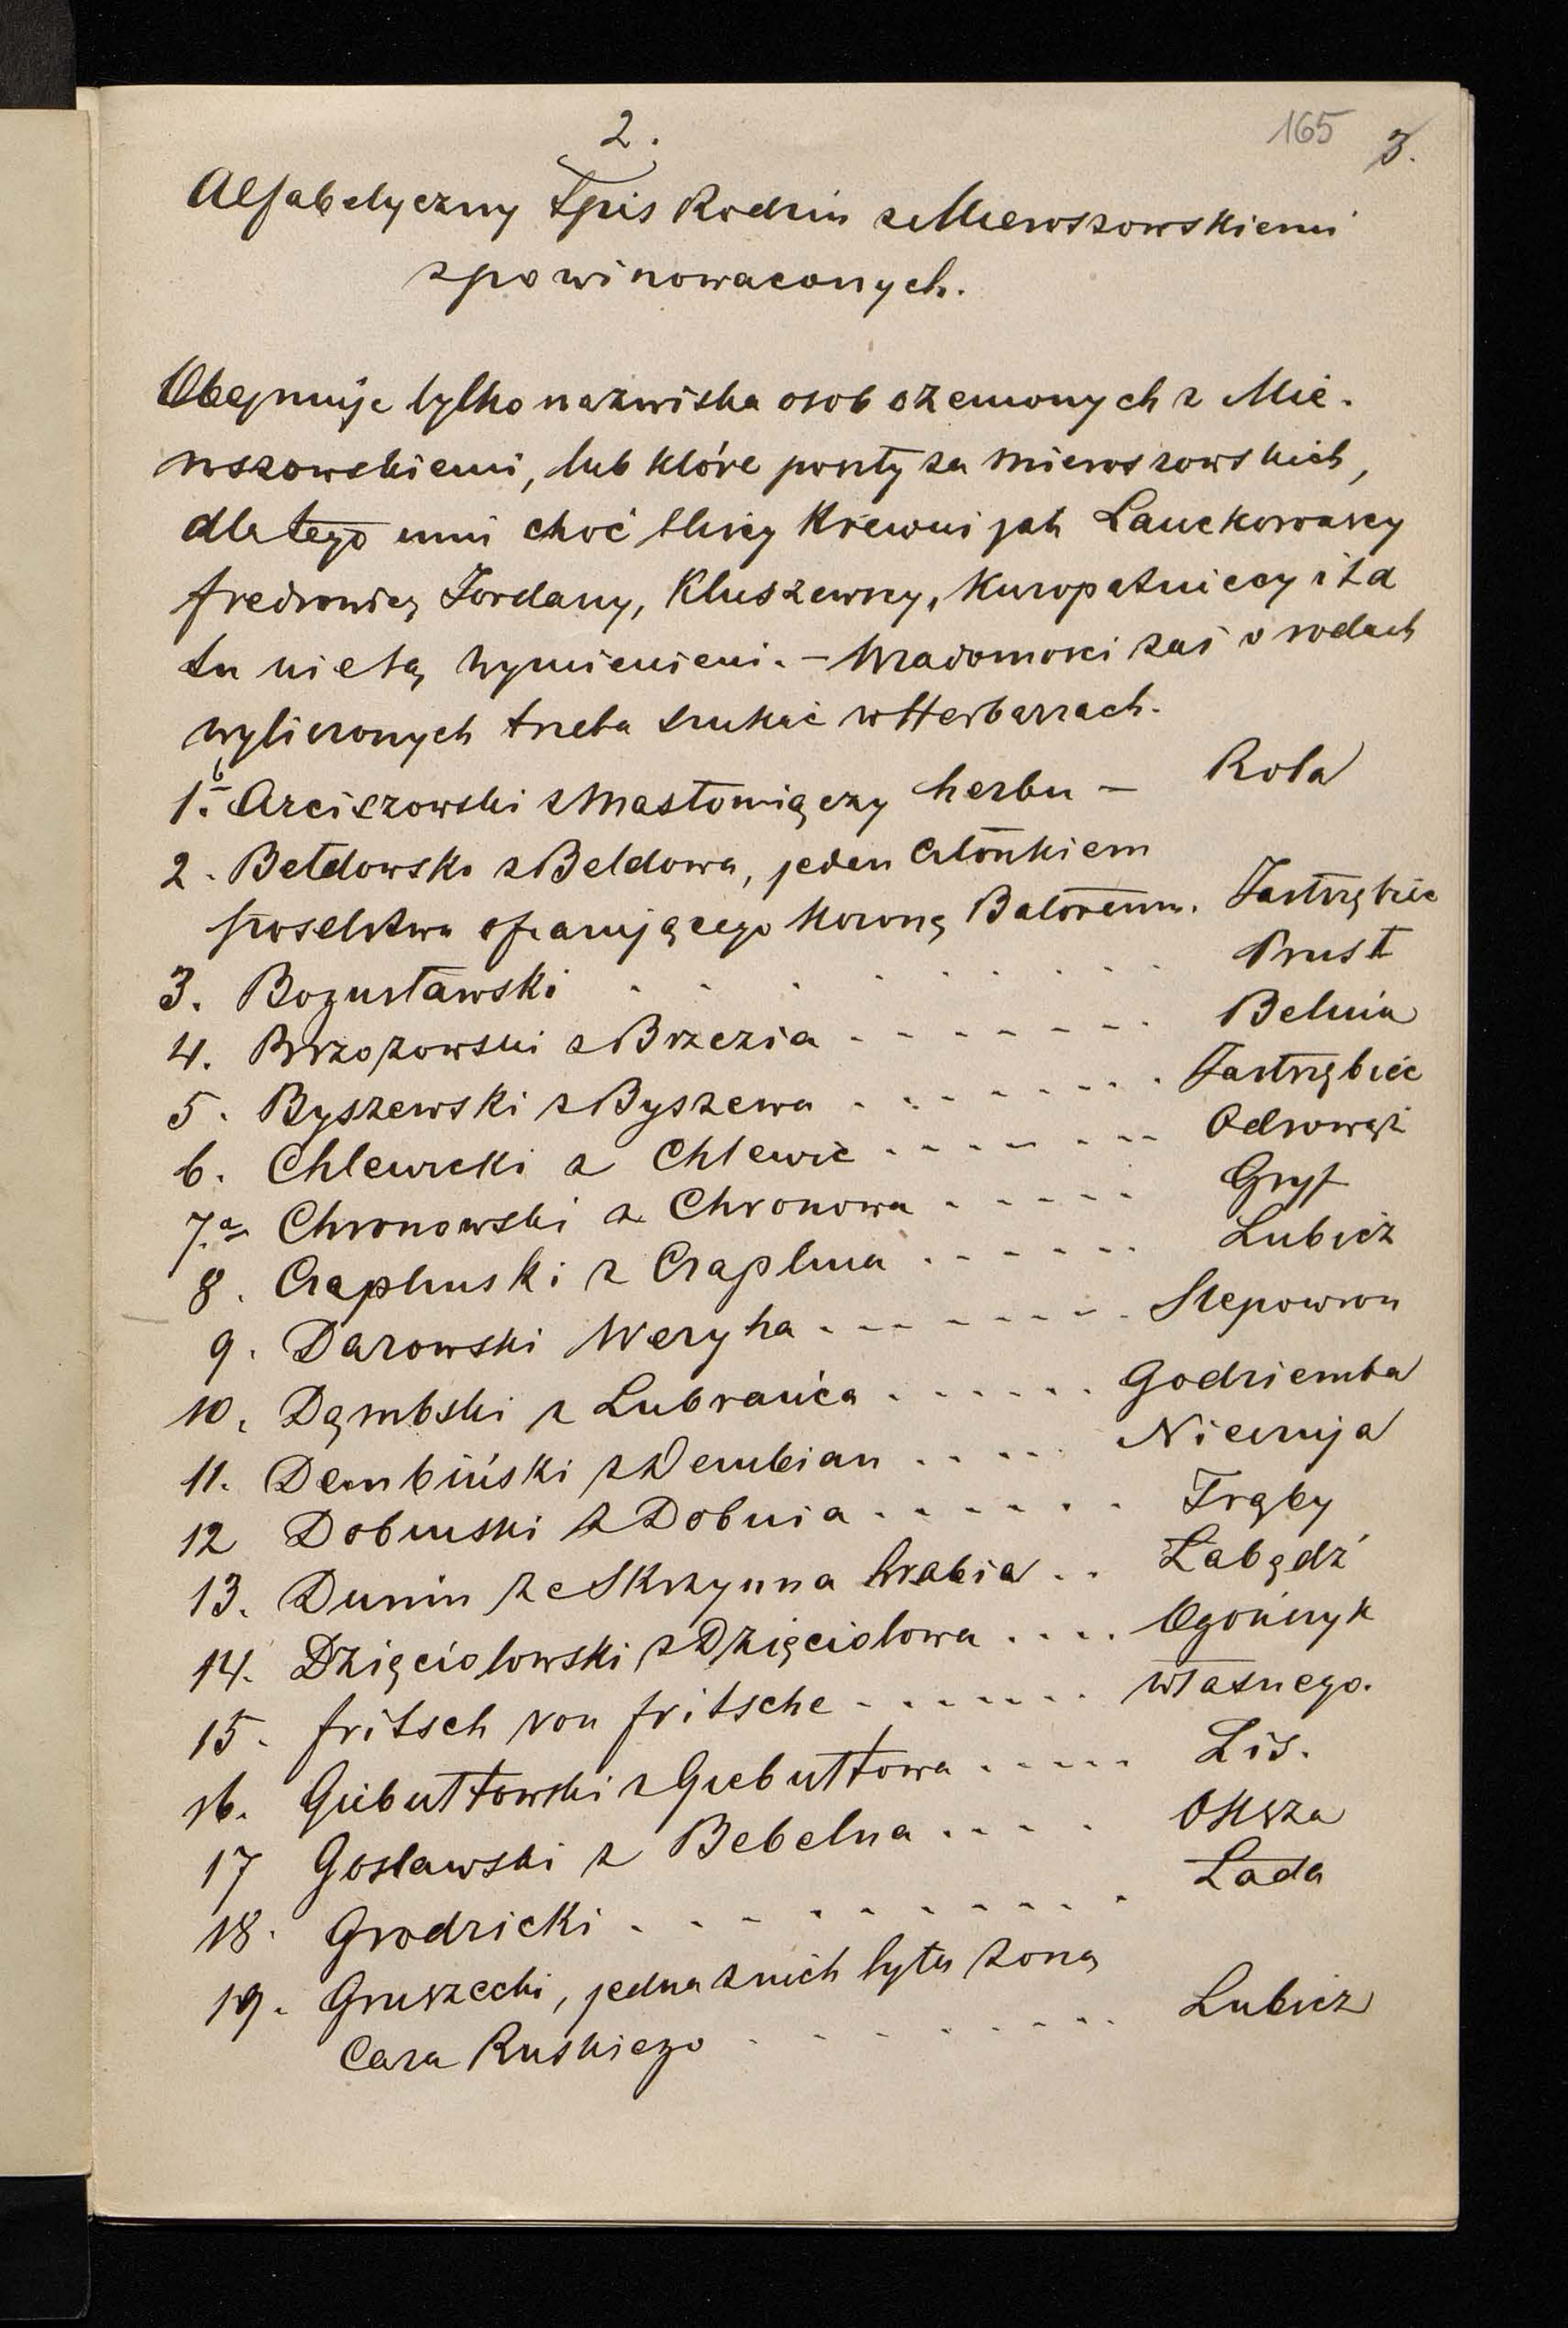 2.
165 3.
Alfabetyczny Spis Rodzin z Mieroszowskiemi
spowinowaconych.
Obejmuje tylko nazwiska osob ożenionych z Mie-
roszowskiemi, lub które poszły za Mieroszowskich,
dlatego inni choć bliscy Krewni jak Lanckorońscy
Fredrowie, Jordany, Kluszewscy, Kuropatniccy i t d
tu nie są wymienieni. – Wiadomości zaś o rodach
wyliczonych trzeba szukać w Herbarzach.
1. b Arciszowski z Mastomiączy herbu – Rola
2. Bełdowski z Beldowa, jeden członkiem
poselstwa ofiarującego Koronę Batoremu. Jastrzębiec
3. Bogusławski . . . . . . . Prus I
4. Brzozowski z Brzezia - - - - - - - Belina
5. Byszewski z Byszewa . - . - - - - . Jastrzębiec
6. Chlewicki z Chlewic - - - - - - - - Odrowąż
7. a Chronowski z Chronowa - - - - - Gryf
8. Czaplinski z Czaplina - - - - - - Lubicz
9. Darowski Weryha - - - - - - - - Slepowron
10. Dąmbski z Lubrańca - - - - - - Godziemba
11. Dembiński z Dembian . - . - . Nieczuja
12 Dobinski z Dobnia - - - - - - Trąby
13. Dunin ze Skrzynna hrabia . . Łabędź
14. Dzięciolowski z Dzięciolowa . . . . Ogończyk
15. Fritsch von Fritsche - - - - - - - własnego.
16. Giebułtowski z Giebułtowa - - - - - Lis.
17 Goslawski z Bebelna . - - . Oksza
18. Grodzicki . - - - - - - - - - Łada
19. Gruszecki, jedna z nich była żoną
Cara Ruskiego . . . . . . . Lubicz